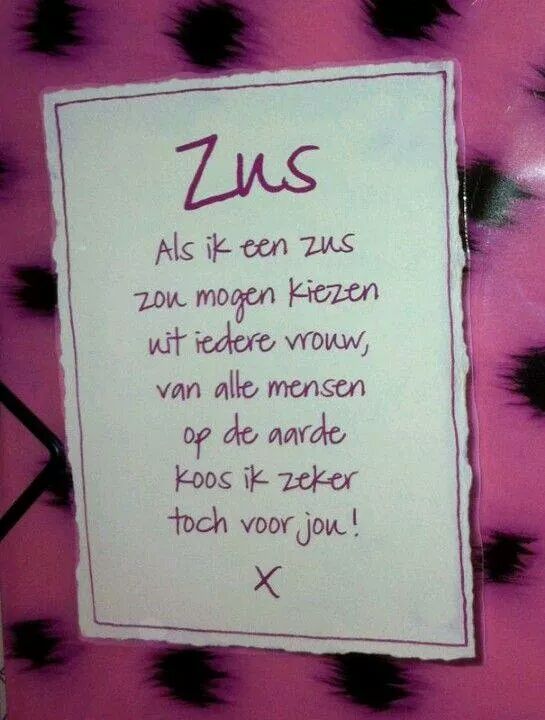 Zus
Als ik een zus
zou mogen kiezen
uit iedere vrouw,
van alle mensen
op de aarde
koos ik zeker
toch voor jou!
X